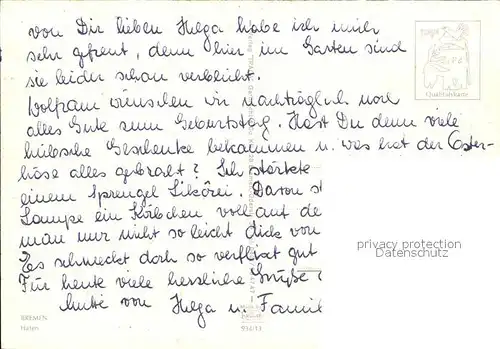 von Dir lieben Helga habe ich mich
sehr gefreut, denn hier im Garten sind
sie leider schon verblüht.
Wolfram wünschen wir nachträglich noch
alles Gute zum Geburtstag. Hast Du denn viele
hübsche Geschenke bekommen u. was hat der Oster-
häse alles gebracht? Ich stärkte
einem Sprengel Likörei. Davon st
Lampe ein Körbchen voll auf de
man nur nicht so leicht dick von
Es schmeckt doch so verflixt gut
Für heute viele herzliche Grüße
Mutti von Helga u. Famil
privacy protection
Datenschutz
Qualitätskarte
BREMEN
Hafen
934/13